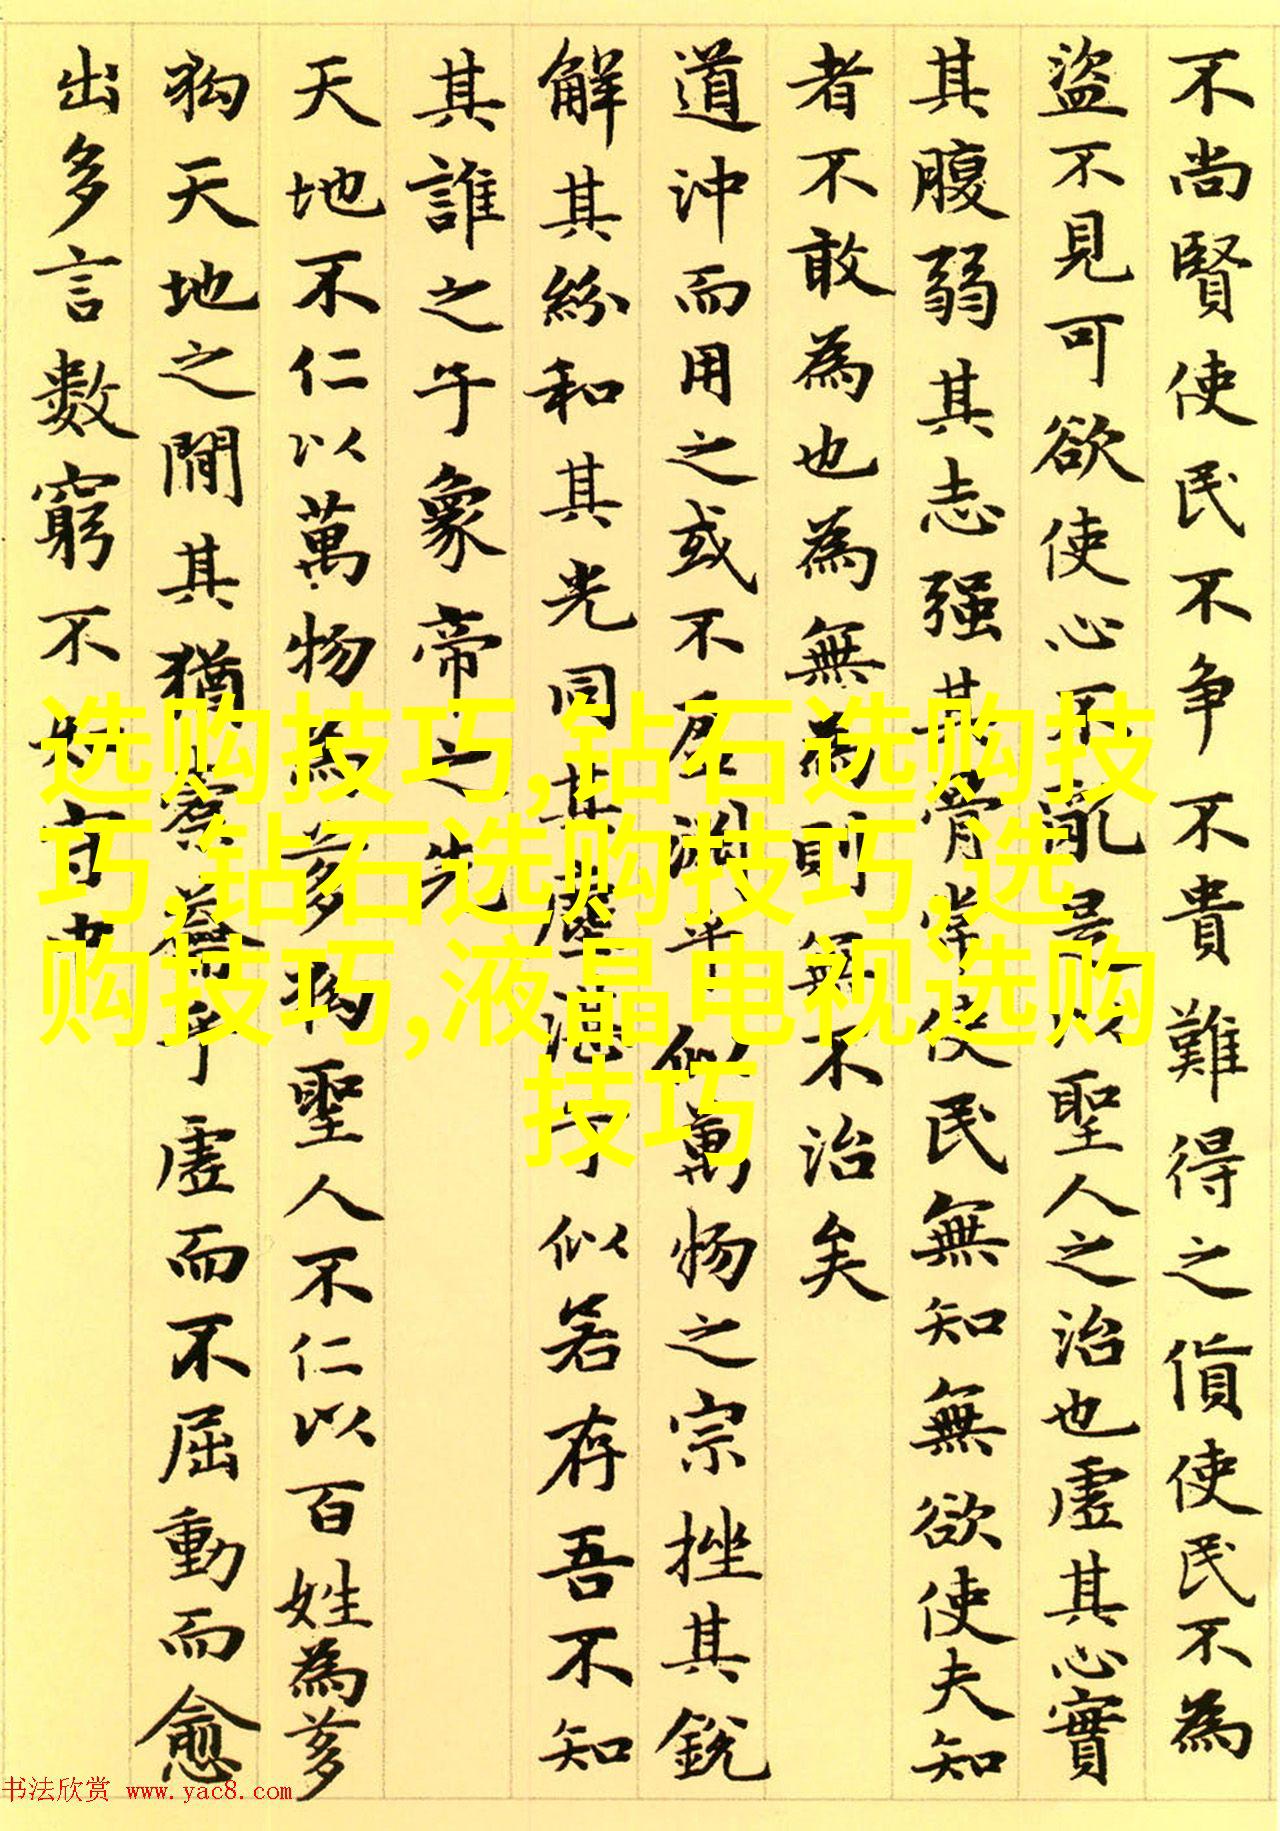 不尚賢使民不争不貴難得之貨使民不為
盜不見可欲使心不亂是以聖人之治也虛其心實
其腹弱其志强其骨常使民無知無欲使夫知
者不敢為也為無為則無不治矣
道沖而用之或不盈淵乎似萬物之宗挫其銳
解其紛和其光同其塵湛兮似若存吾不知
其誰之子象帝之先
天地不仁以萬物為芻狗聖人不仁以百姓為芻
狗天地之間其猶橐籥乎虛而不屈動而愈
出多言數窮不如守中
选购技巧,钻石选购技
巧,钻石选购技巧,选
购技巧,液晶电视选购
技巧
书法欣赏 www.yac8.com